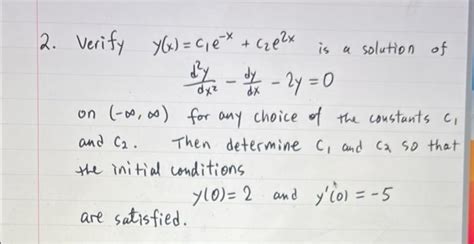 2. Verify y(x) = c₁e⁻ˣ + c₂e²ˣ is a solution of
d²y/dx² - dy/dx - 2y = 0
on (-∞, ∞) for any choice of the constants c₁
and c₂. Then determine c₁ and c₂ so that
the initial conditions
y(0) = 2 and y'(0) = -5
are satisfied.